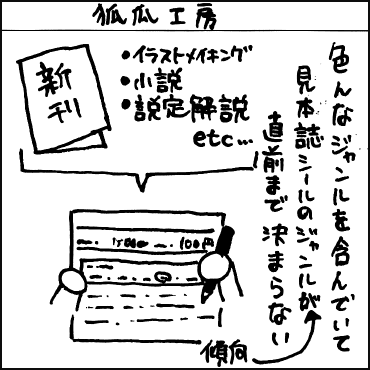 狐瓜工房
新刊
・イラストメイキング
・小説
・設定解説
etc...
色んなジャンルを含んでいて
見本誌シールのジャンルが
直前まで決まらない
100円
傾向